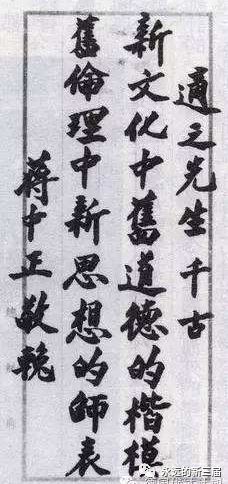 適之先生千古
新文化中舊道德的楷模
舊倫理中新思想的師表
蔣中正敬輓
永远的新三届